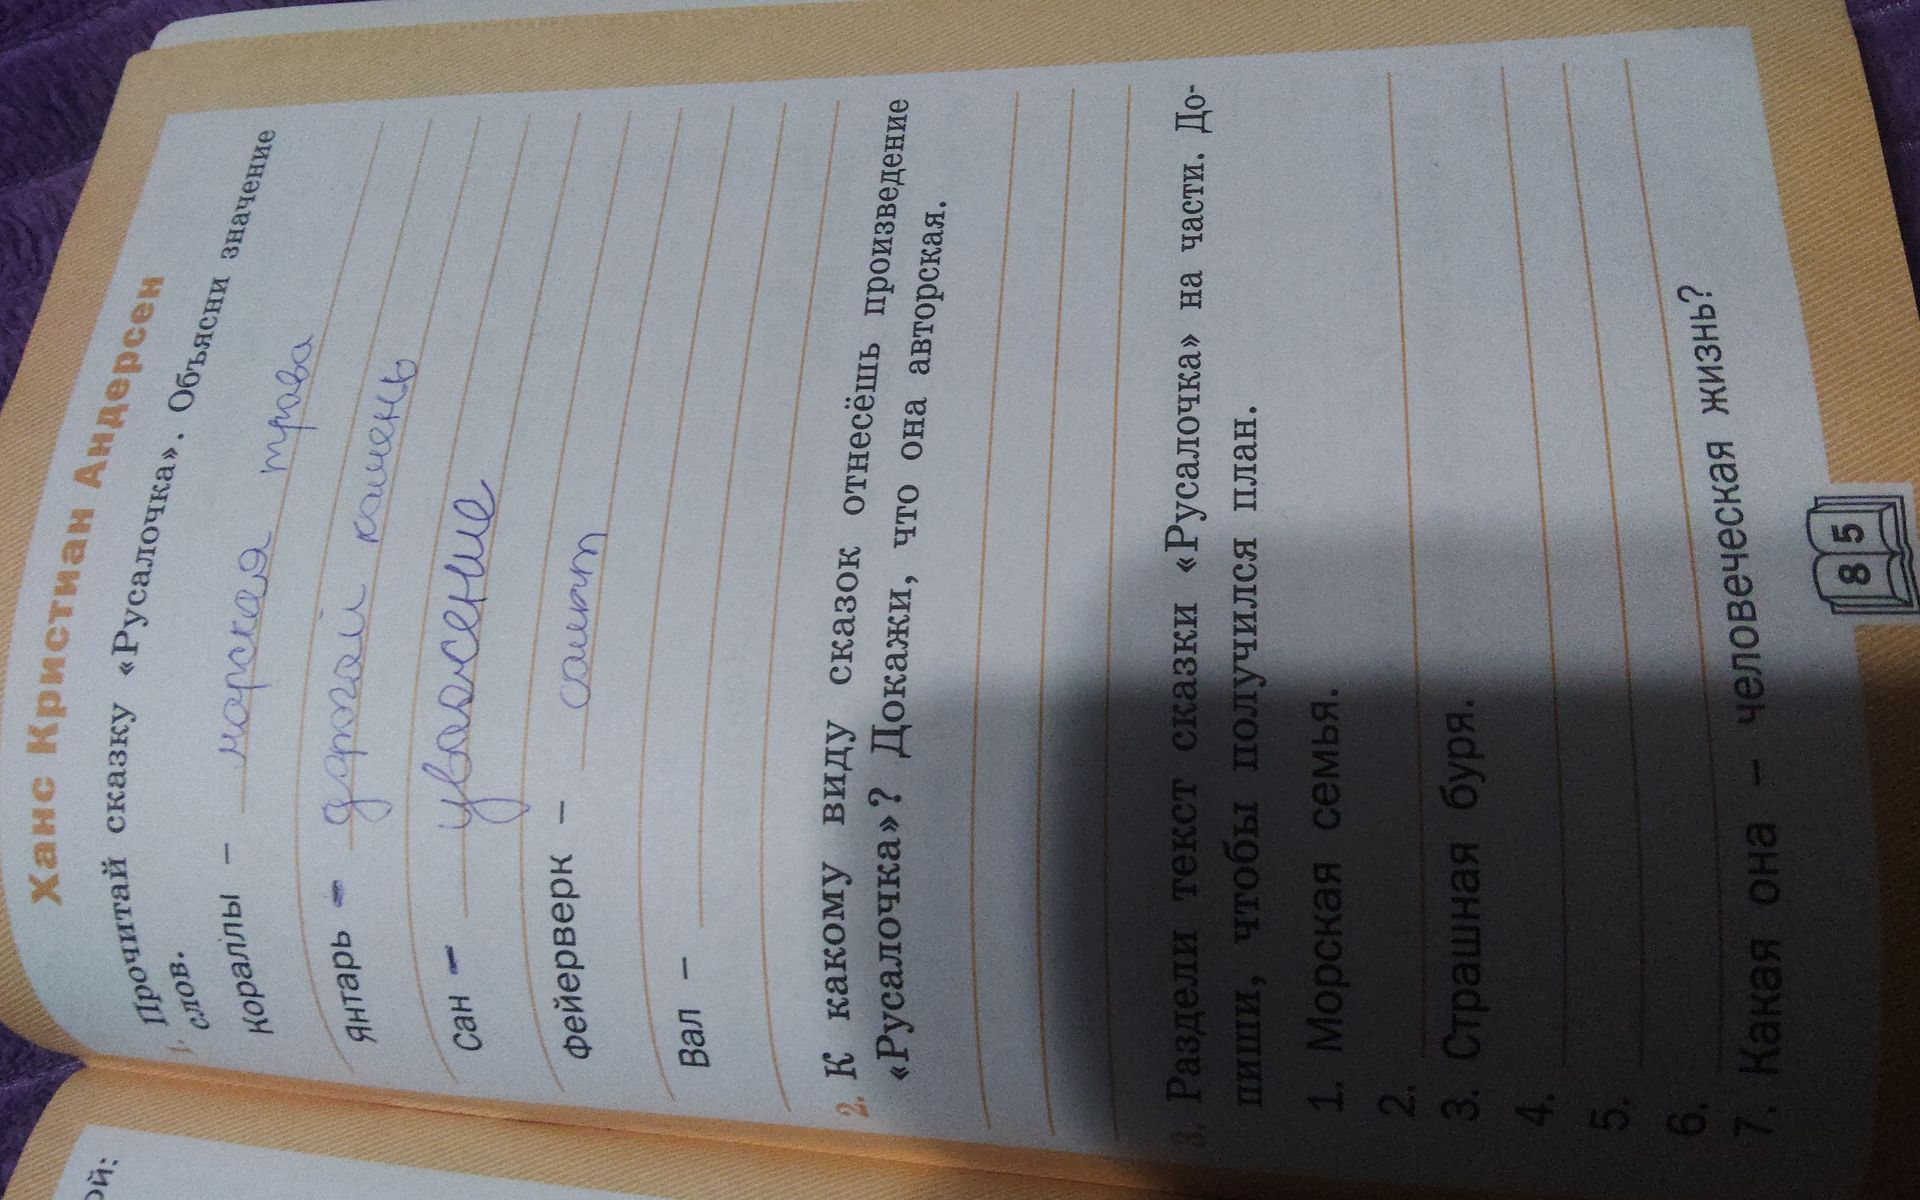 ой:
Ханс Кристиан Андерсен
1. Прочитай сказку «Русалочка». Объясни значение
слов.
Кораллы – морская трава
Янтарь – другой камень
Сан – уважение
Фейерверк – салют
Вал –
2. К какому виду сказок отнесёшь произведение
«Русалочка»? Докажи, что она авторская.
3. Раздели текст сказки «Русалочка» на части. До-
пиши, чтобы получился план.
1. Морская семья.
2.
3. Страшная буря.
4.
5.
6.
7. Какая она – человеческая жизнь?
85